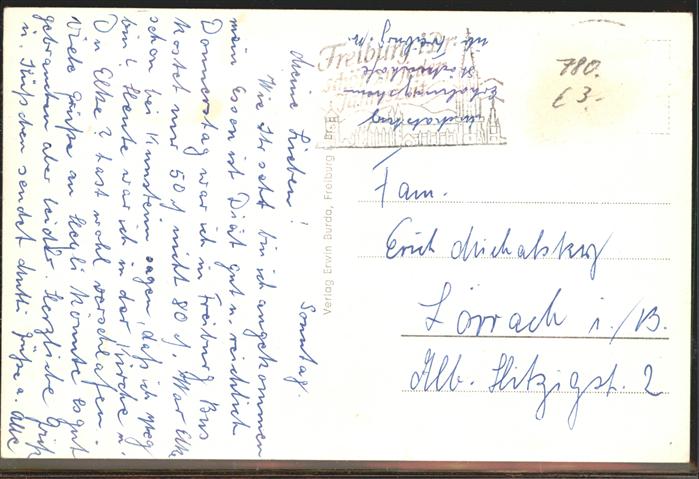 Sonntag.
Meine Lieben!
Wie Ihr seht bin ich angekommen
mein Essen ist Diät gut u. reichlich
Donnerstag war ich in Freiburg Bus
kostet nur 50 ₰ nicht 80 ₰. War Elke
schon bei Kunstein sagen, daß ich weg
bin? Heute war ich in der Kirche u.
Du Elke? hast wohl verschlafen.
Viele Grüße an Heyli könnte es gut
gebrauchen aber leider. Herzliche Grüße
u. Küßchen sendet Mutti Grüße a. Alle
Michalsky
Erholungsheim
Freiburg i. Br.
Verlag Erwin Burda, Freiburg i. Br.
780.
£ 3.-
Fam.
Erich Michalsky
Lörrach i./B.
Alb. Hitzigst. 2